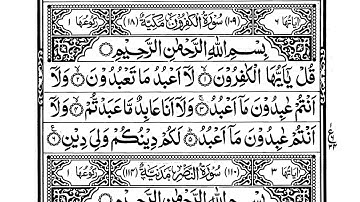 اٰیَاتُهَا ٦ (١٠٩) سُوْرَةُ الْكٰفِرُوْنَ مَكِّیَّةٌ (١٨) رُكُوْعُهَا ١
بِسْمِ اللّٰهِ الرَّحْمٰنِ الرَّحِیْمِ
قُلْ یٰۤاَیُّهَا الْكٰفِرُوْنَ ۙ لَاۤ اَعْبُدُ مَا تَعْبُدُوْنَ ۙ وَلَاۤ
اَنْتُمْ عٰبِدُوْنَ مَاۤ اَعْبُدُ ۚ وَلَاۤ اَنَا عَابِدٌ مَّا عَبَدْتُّمْ ۙ وَلَاۤ
اَنْتُمْ عٰبِدُوْنَ مَاۤ اَعْبُدُ ؕ لَكُمْ دِیْنُكُمْ وَلِیَ دِیْنِ
اٰیَاتُهَا ٣ (١١٠) سُوْرَةُ النَّصْرِ مَدَنِیَّةٌ (١١٤) رُكُوْعُهَا ١
بِسْمِ اللّٰهِ الرَّحْمٰنِ الرَّحِیْمِ